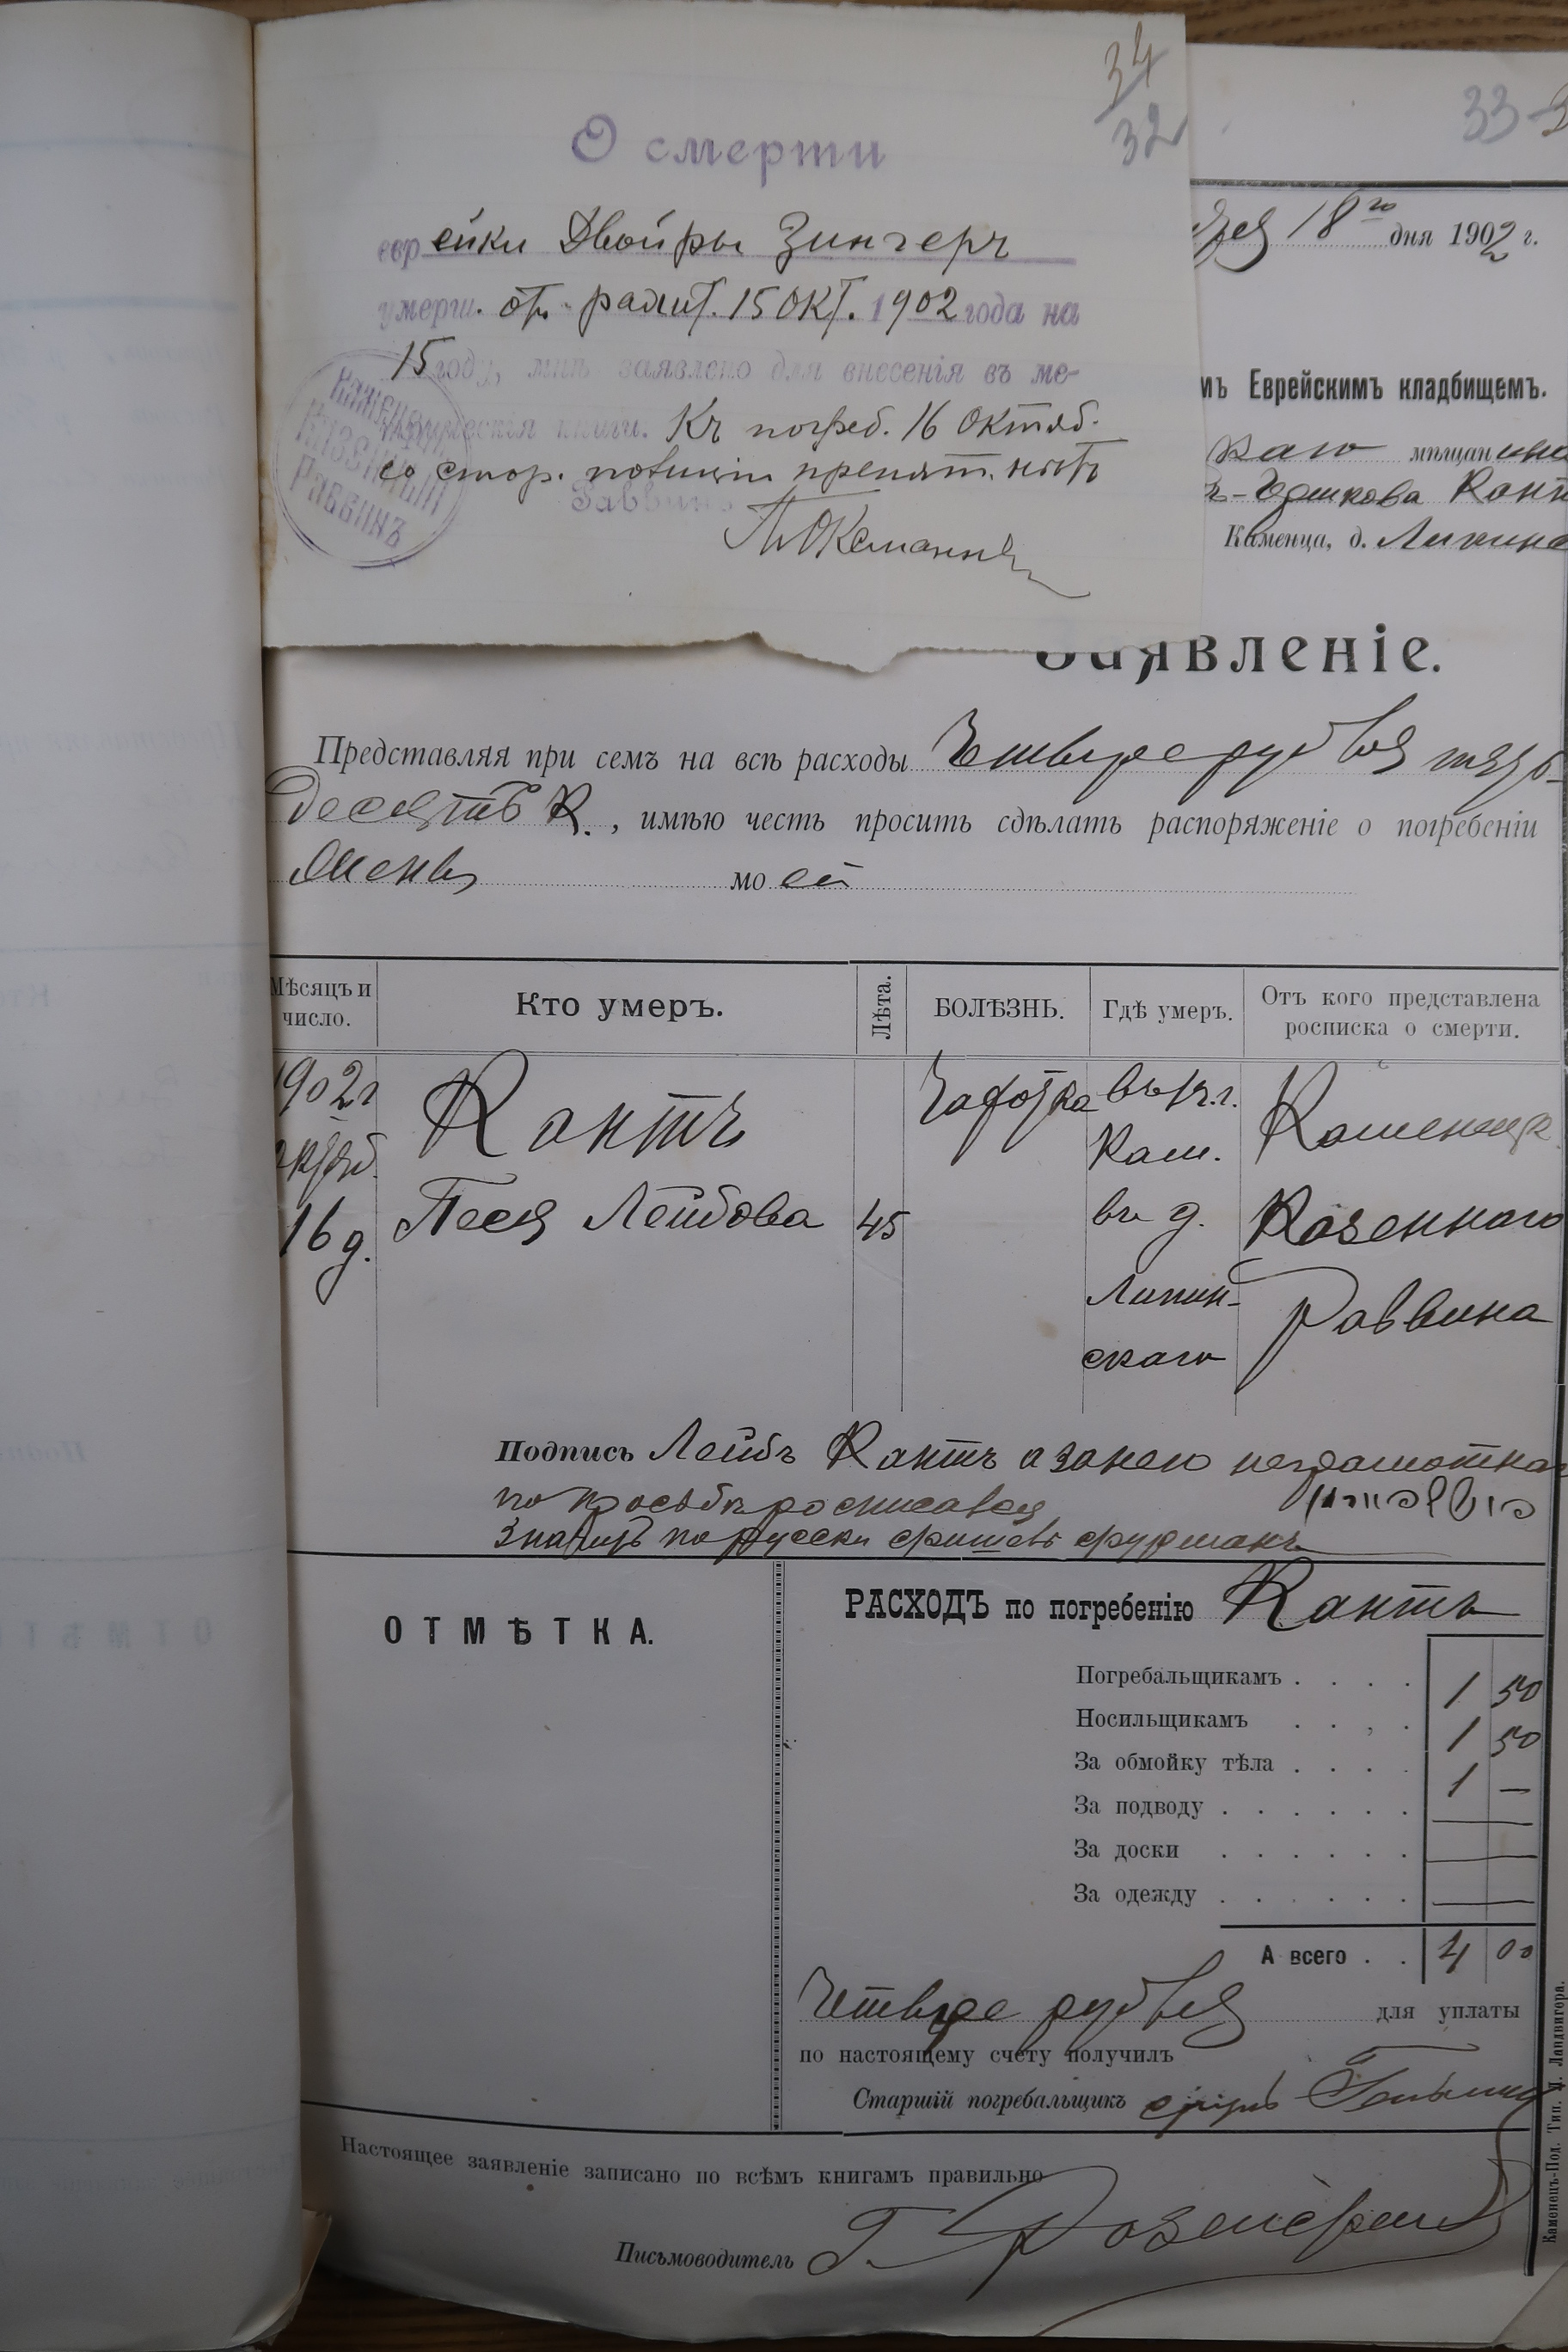 34
32
О смерти
еврейки Двойры Зингеръ
умерш. от 15 окт. 1902 года на
15 году, мнѣ заявлено для внесенія въ ме-
трическія книги. Къ погреб. 16 Октяб.
со стор. полиціи препят. нѣтъ
Раввинъ
Каменецкій
Казенный
Раввинъ
33
18го дня 1902 г.
мъ Еврейскимъ кладбищемъ.
каго мѣщанина
Кант
Каменца, д. Липинс
Заявленіе.
Представляя при семъ на всѣ расходы Четыре рубля пять-
десятъ К., имѣю честь просить сдѣлать распоряженіе о погребеніи
Жены моей
Мѣсяцъ и число.
Кто умеръ.
Лѣта.
БОЛѢЗНЬ.
Гдѣ умеръ.
Отъ кого представлена росписка о смерти.
1902г
октяб.
16 д.
Кантъ
Песя Лейбова
45
Чахотка
Кам.
въ д.
Липин-
скаго
Каменецк.
Казеннаго
Раввина
Подпись Лейбъ Кантъ а за него неграмотнаго
по просьбѣ росписался
по русски
ОТМѢТКА.
РАСХОДЪ по погребенію Кантъ
Погребальщикамъ . . . . 1 50
Носильщикамъ . . . . 1 50
За обмойку тѣла . . . . 1 —
За подводу . . . . . . —
За доски . . . . . . —
За одежду . . . . . . —
А всего . . 4 00
Четыре рубля для уплаты
по настоящему счету получилъ
Старшій погребальщикъ
Настоящее заявленіе записано по всѣмъ книгамъ правильно
Письмоводитель Г.
Каменецъ-Под. Тип. Д. Ландвигора.